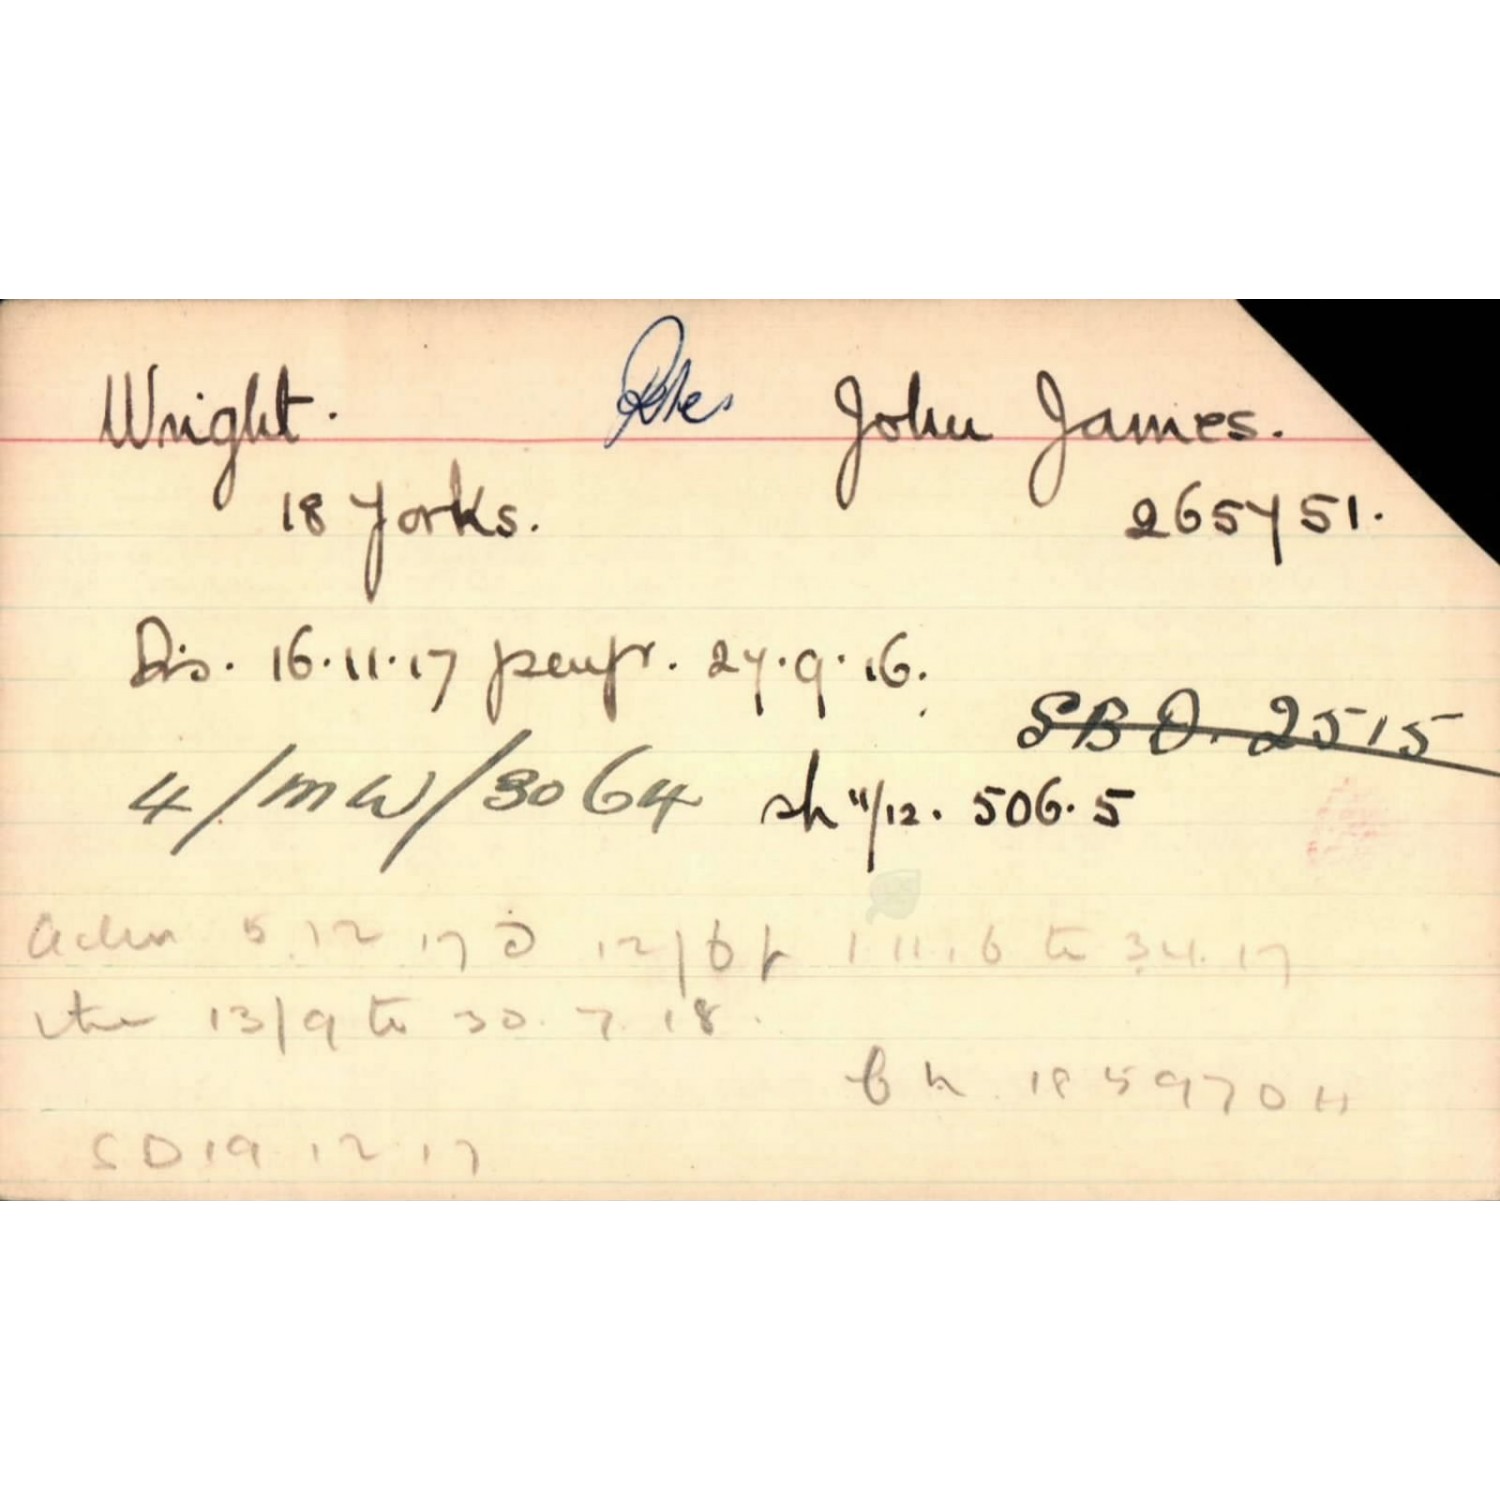 Wright. Ptes John James.
18 Yorks. 265751.
Dis. 16.11.17 penfr. 27.9.16.
SBO. 2515
4/MW/3064 sh 11/12. 506.5
Adm 5.12.17 12/6 f 1.11.16 to 3.4.17
13/9 to 30.7.18.
185970
SD 19 12 17